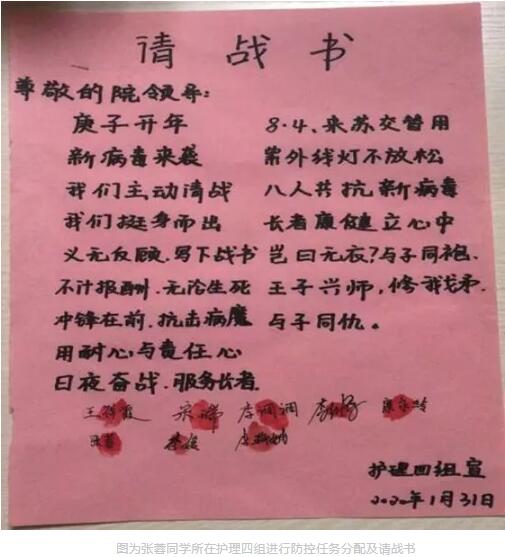 请战书
尊敬的院领导:
庚子开年
新病毒来袭
我们主动请战
我们挺身而出
义无反顾.写下战书
不计报酬.无论生死
冲锋在前.抗击病魔
用耐心与责任心
日夜奋战.服务长者.
8.4、来苏交替用
紫外线灯不放松
八人共抗新病毒
长者康健立心中
岂曰无衣?与子同袍.
王子兴师,修我戈矛.
与子同仇。
护理四组宣
2020年1月31日
图为张蓉同学所在护理四组进行防控任务分配及请战书